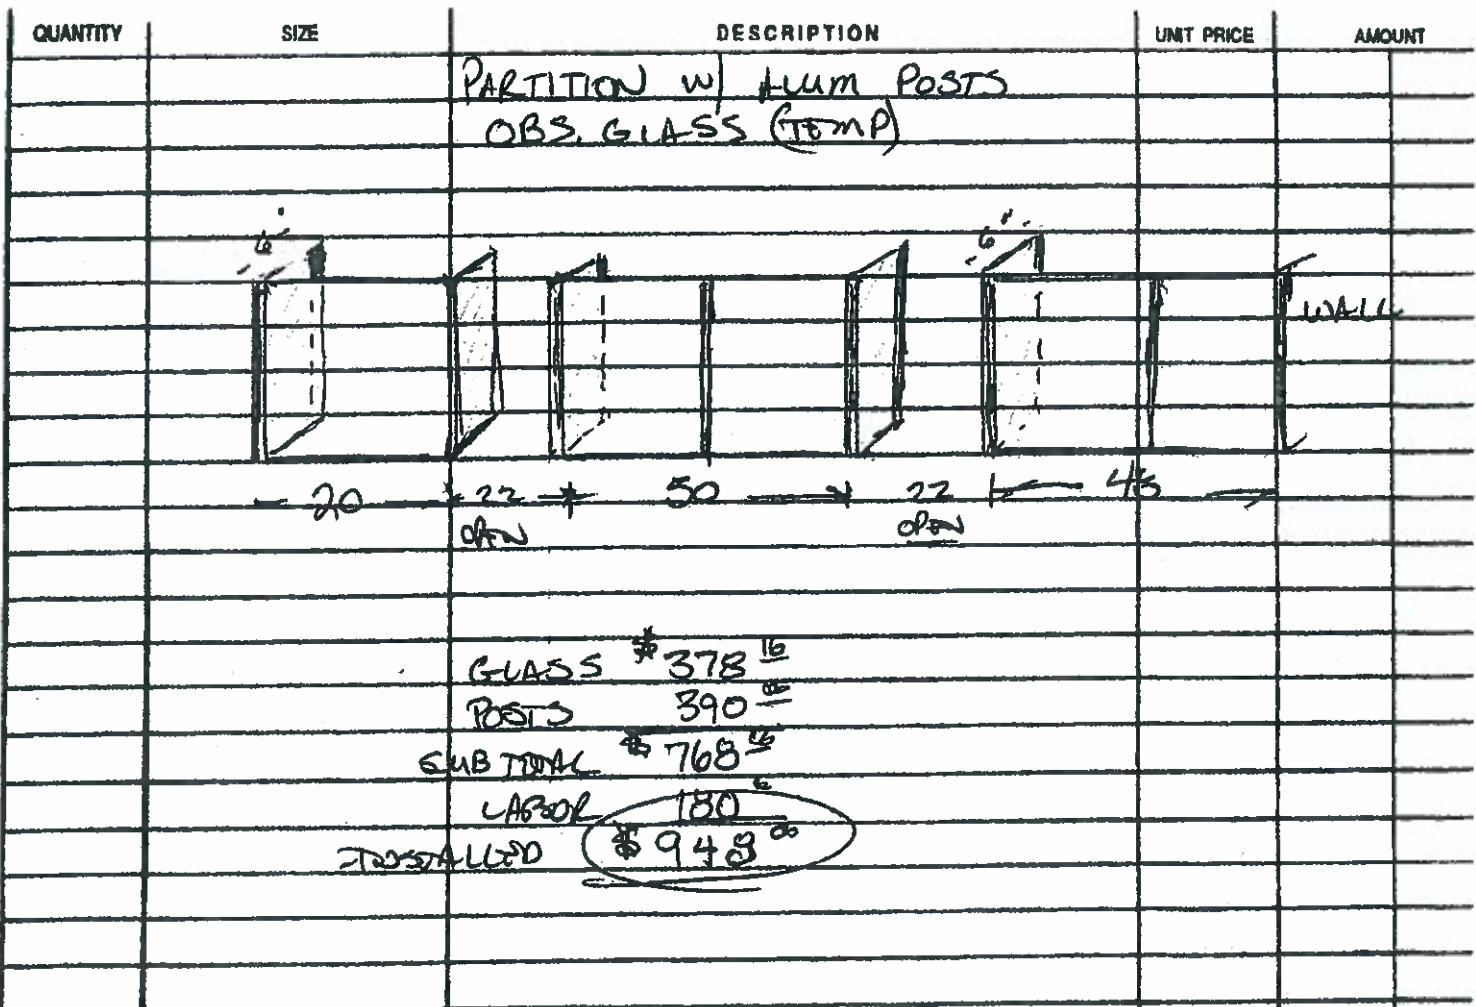 QUANTITY SIZE DESCRIPTION UNIT PRICE AMOUNT
PARTITION W/ ALUM POSTS
OBS. GLASS (TEMP)
6" 6"
WALL
20 22 50 22
OPEN OPEN
GLASS $378 16
POSTS 390 00
SUB TOTAL $768 16
LABOR 180
INSTALLED $948 00